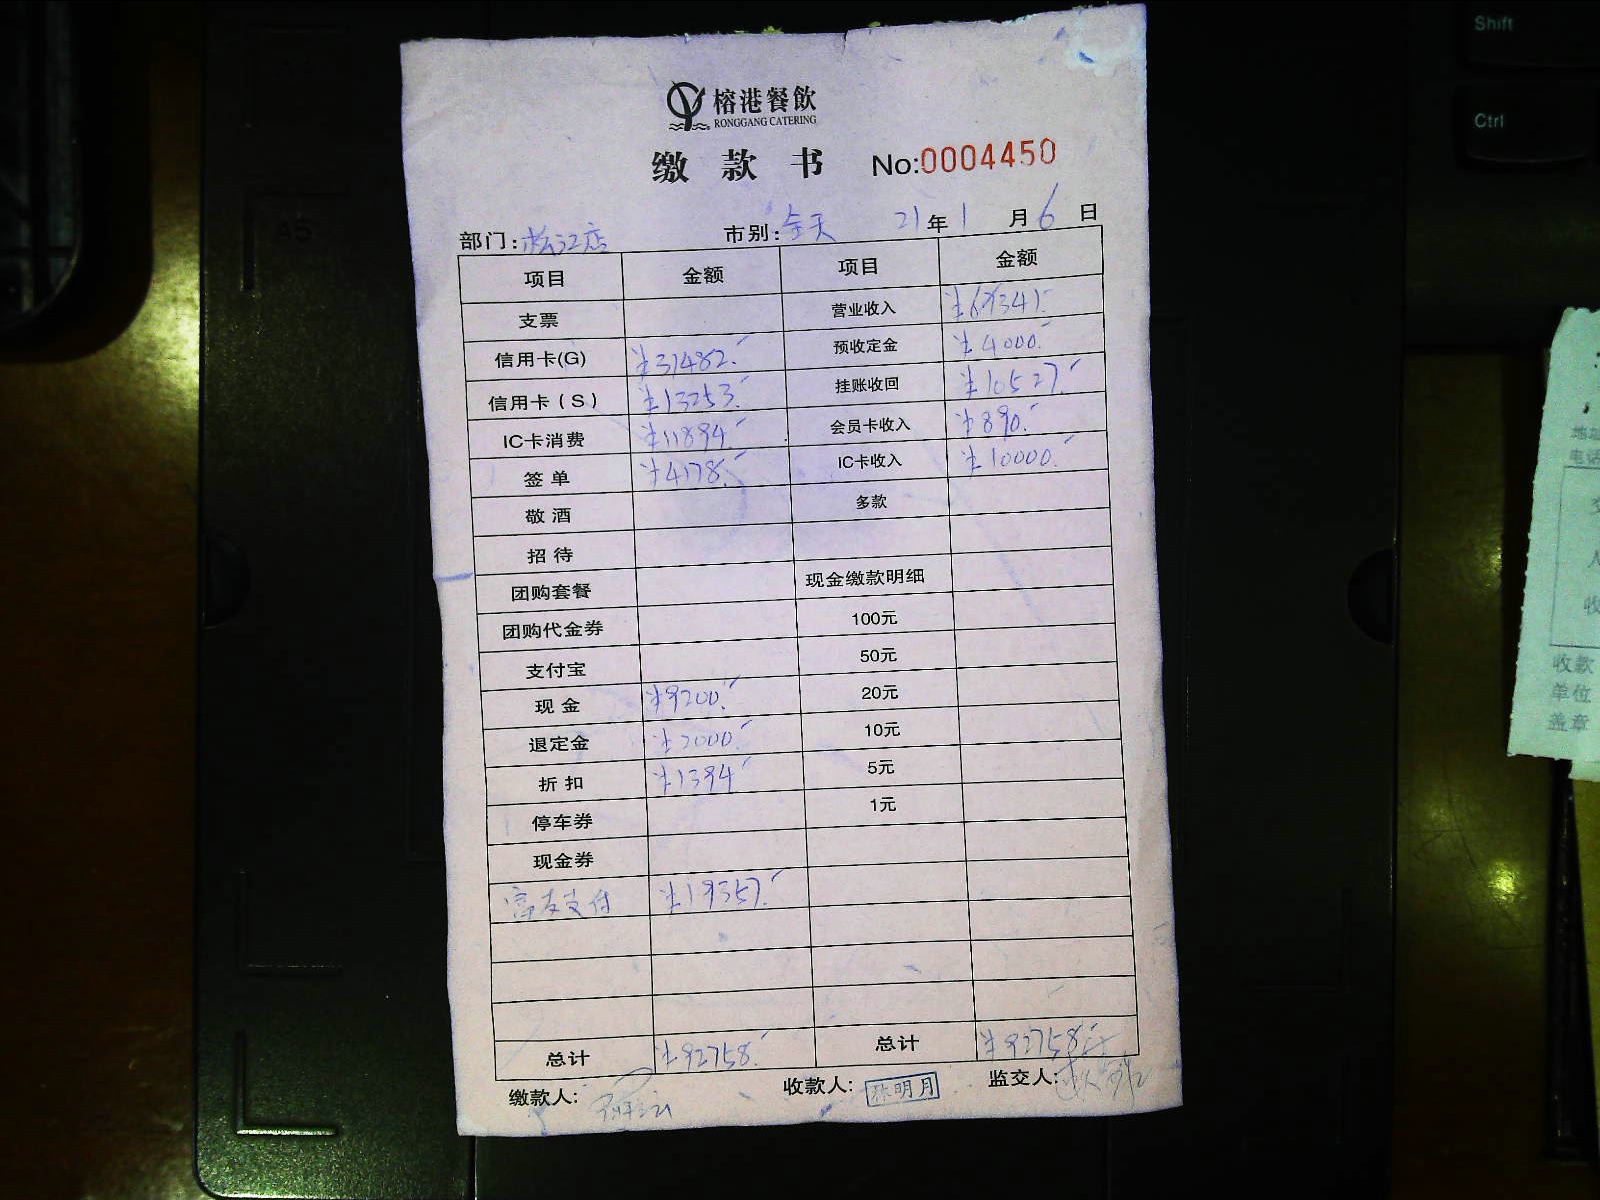 榕港餐飲
RONGGANG CATERING
缴款书 No:0004450
部门:松江店 市别:全天 21年1月6日
项目 金额 项目 金额
支票 营业收入 ¥67341.-
信用卡(G) ¥31482.- 预收定金 ¥4000.-
信用卡(S) ¥13253.- 挂账收回 ¥10527.-
IC卡消费 ¥11894.- 会员卡收入 ¥890.-
签单 ¥4178.- IC卡收入 ¥10000.-
敬酒 多款
招待
团购套餐 现金缴款明细
团购代金券 100元
支付宝 50元
现金 ¥9200.- 20元
退定金 ¥2000.- 10元
折扣 ¥1394.- 5元
停车券 1元
现金券
富友支付 ¥19357.-
总计 ¥92758.- 总计 ¥92758.-
缴款人: 收款人: 林明月 监交人:
Shift
Ctrl
A5
收款
单位
盖章